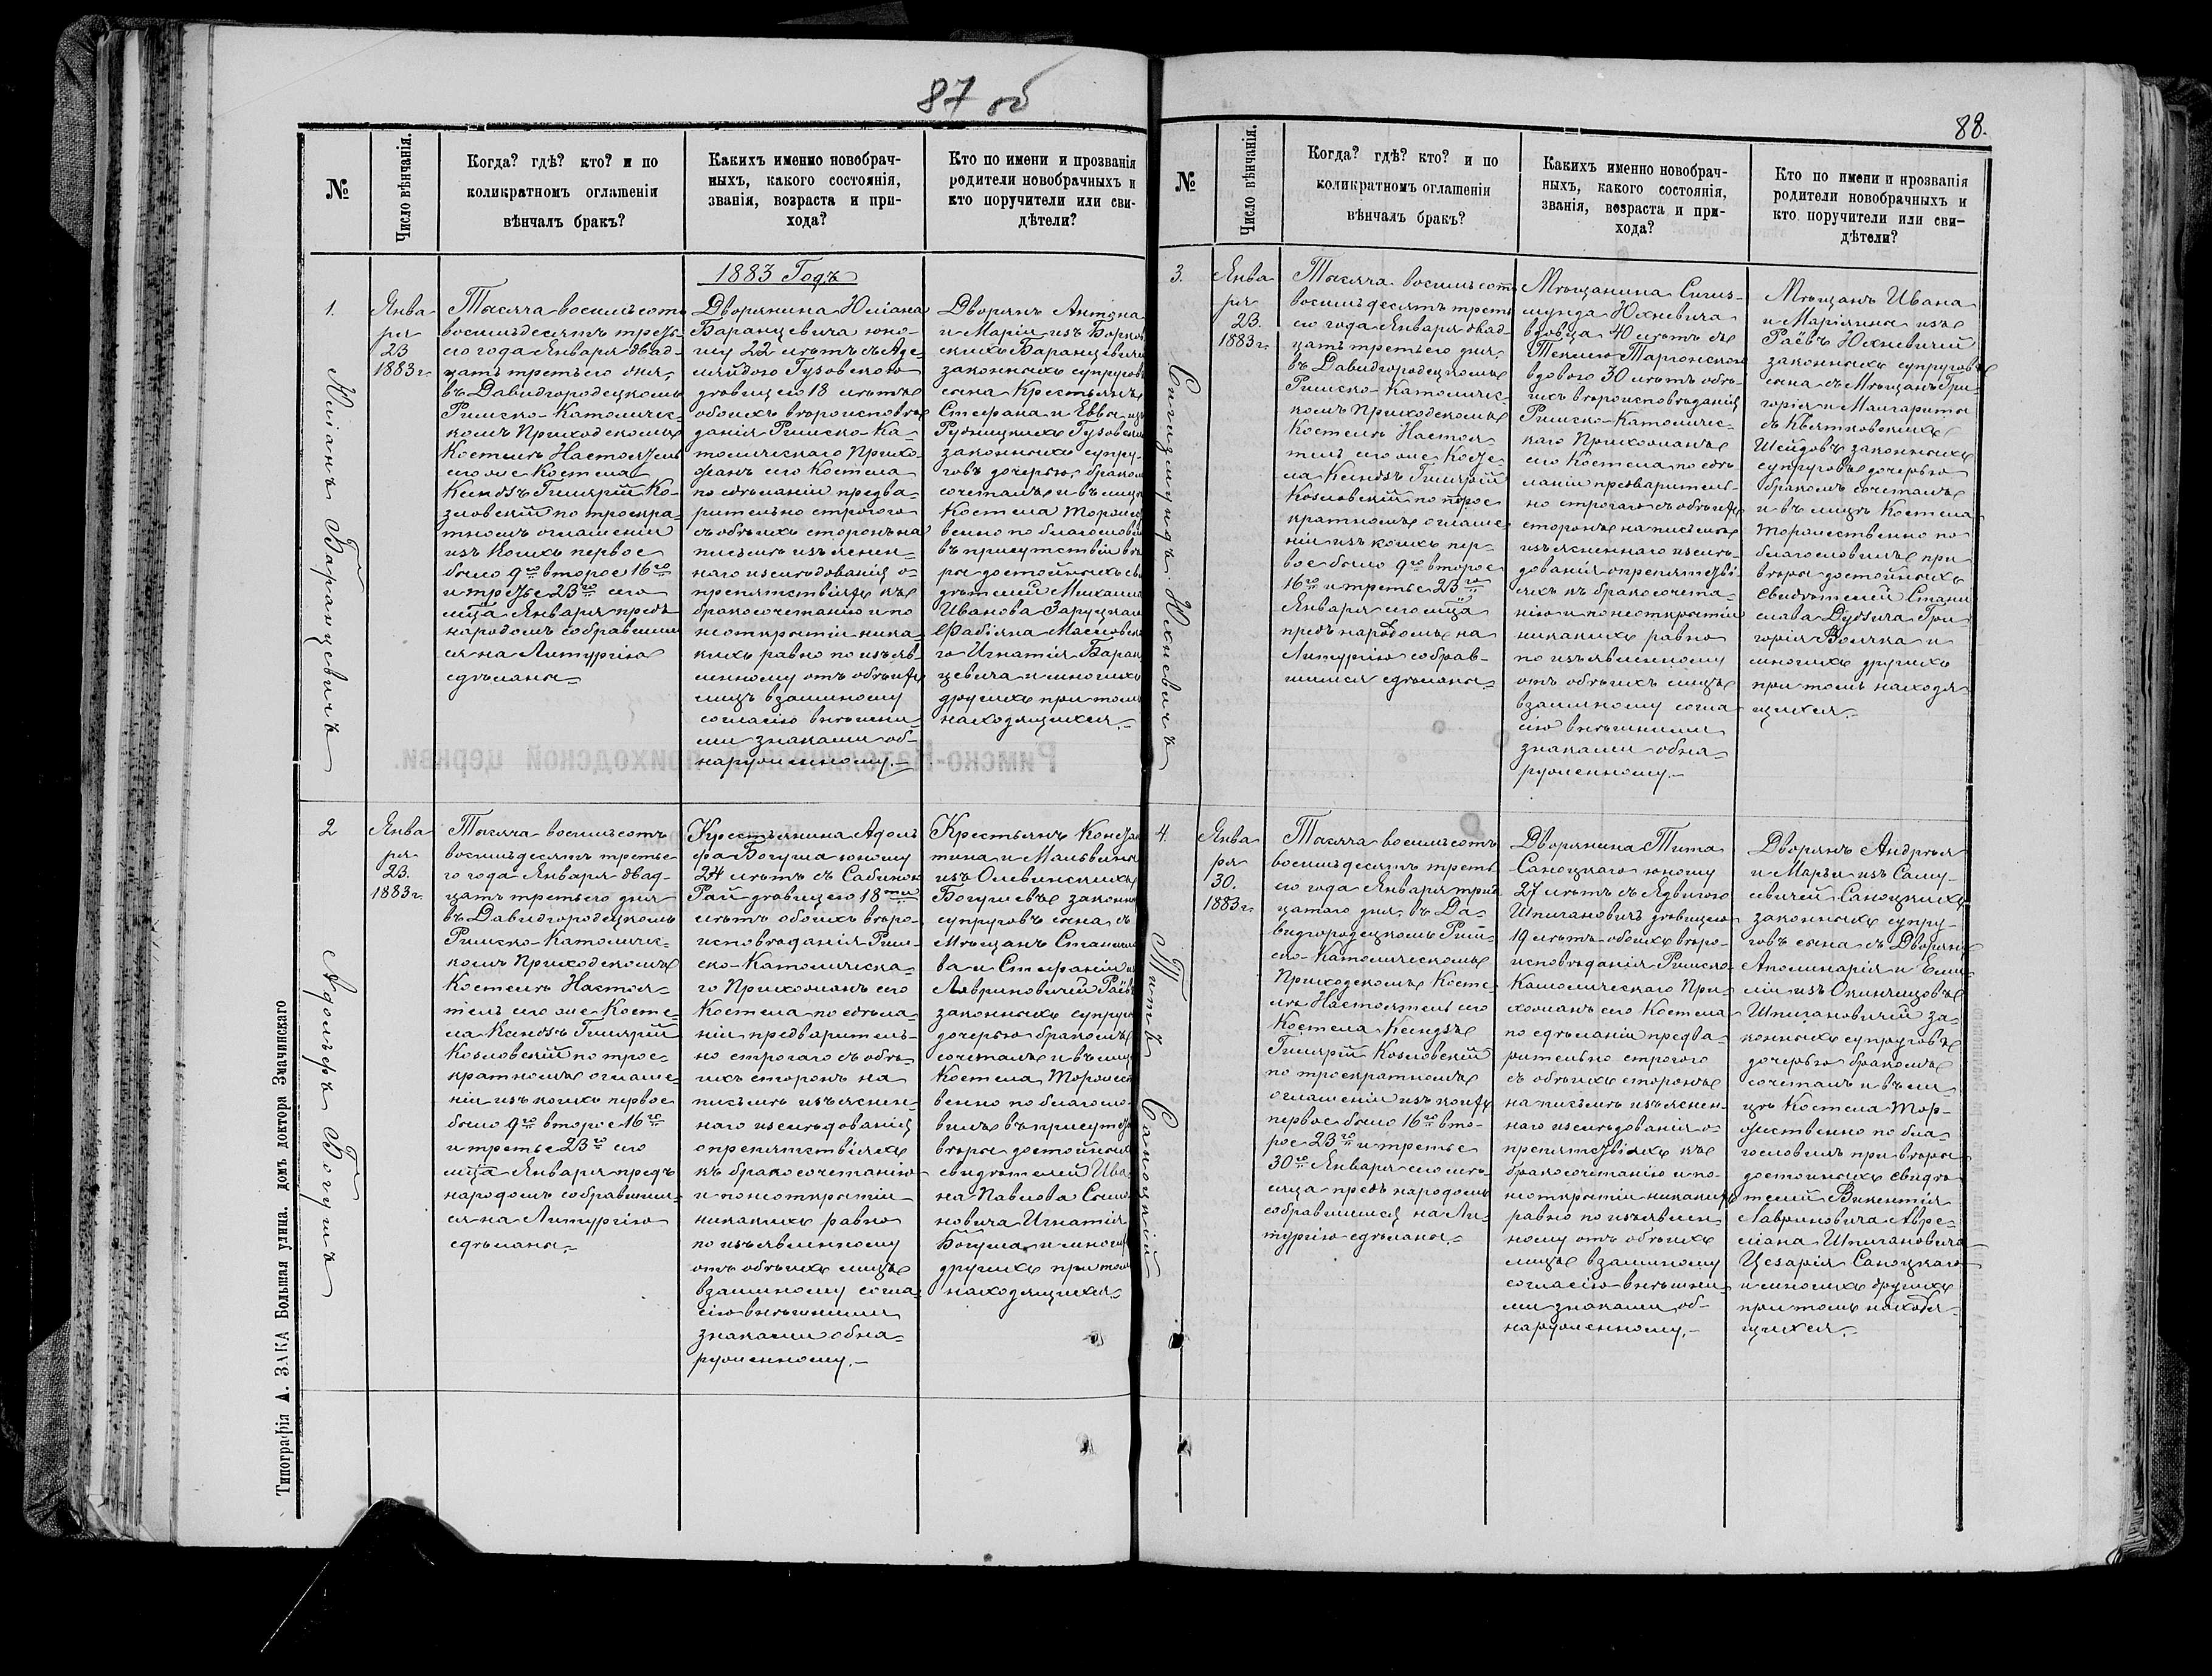 87 об
№
Число вѣнчанія.
Когда? гдѣ? кто? и по
коликратномъ оглашеніи
вѣнчалъ бракъ?
Какихъ именно новобрач-
ныхъ, какого состоянія,
званія, возраста и при-
хода?
Кто по имени и прозванія
родители новобрачныхъ и
кто поручители или сви-
дѣтели?
1883 Годъ
1.
Юліанъ Баранцевичъ
Янва
ря
23
1883 г.
Тысяча восемьсотъ
восемьдесятъ треть-
его года Января двад-
цать третьего дня,
въ Давидгородецкомъ
Римско-Католичес-
комъ Приходскомъ
Костелѣ Настоятель
сего же Костела
Ксендзъ Гилярій Ко-
зловскій по троекра-
тномъ оглашеніи
изъ коихъ первое
было 9го второе 16го
и третье 23го сего
мца Января предъ
народомъ собравшим
ся на Литургію
сдѣланы
Дворянина Юліана
Баранцевича юно-
шу 22 лѣтъ съ Аде-
ляйдою Гузовскою
дѣвицею 18 лѣтъ
обоихъ вѣроисповѣ
данія Римско-Ка-
толическаго Прихо-
жанъ сего Костела
по сдѣланіи предва-
рительно строгого
съ обѣихъ сторонъ на
письмѣ изъяснен-
наго изслѣдованія о
препятствіяхъ къ
бракосочетанію и по
неоткрытіи ника-
кихъ равно по изъяв-
ленному отъ обѣихъ
лицъ взаимному
согласію внѣшни-
ми знаками об-
наруженному.
Дворянъ Антона
и Маріи изъ
Баранцевичей
законныхъ супруговъ
сына Крестьянъ
Стефана и Еввы изъ
Рудницкихъ Гузовскихъ
законныхъ супру-
говъ дочерью, бракомъ
сочеталъ и въ лицѣ
Костела торжест
венно по благословилъ
въ присутствіи вѣ
ры достойныхъ сви
дѣтелей Михаила
Иванова Заруцкаго
Фабіяна
го Игнатія Баран
цевича и многихъ
другихъ при томъ
находящихся.
2
Адольфъ Богушъ
Янва
ря
23.
1883 г.
Тысяча восемьсотъ
восемьдесятъ третье-
го года Января двад-
цать третьего дня
въ Давидгородецкомъ
Римско-Католичес-
комъ Приходскомъ
Костелѣ Настоя-
тель сего же Косте-
ла Ксендзъ Гилярій
Козловскій по трое-
кратномъ оглаше-
ніи изъ коихъ первое
было 9го второе 16го
и третье 23го сего
мца Января предъ
народомъ собравшим-
ся на Литургію
сдѣланы.
Крестьянина Адоль
фа Богуша юношу
24 лѣтъ съ Сабиною
Рай дѣвицею 18ти
лѣтъ обоихъ вѣро-
исповѣданія Рим-
ско-Католическа-
го Прихожанъ сего
Костела по сдѣла-
ніи предваритель-
но строгаго съ обѣ-
ихъ сторонъ на
письмѣ изъяснен-
наго изслѣдованія
о препятствіяхъ
къ бракосочетанію
и по неоткрытіи
никакихъ равно
по изъявленному
отъ обѣихъ лицъ
взаимному согла-
сію внѣшними
знаками обна-
руженному.
Крестьянъ Конста
тина и Мальвины
изъ Олевинскихъ
Богушевъ законныхъ
супруговъ сына, съ
Мѣщанъ Станисла
ва и Стефаніи изъ
Лавриновичей Раёвъ
законныхъ супруговъ
дочерью бракомъ
сочеталъ и въ лицѣ
Костела торжест
венно по благосло-
вилъ въ присутствіи
вѣры достойныхъ
свидѣтелей Ива
на Павлова
новича Игнатія
Богуша и многихъ
другихъ при томъ
находящихся.
Типографія А. ЗАКА Большая улица. домъ доктора Змачинскаго
88.
№
Число вѣнчанія.
Когда? гдѣ? кто? и по
коликратномъ оглашеніи
вѣнчалъ бракъ?
Какихъ именно новобрач-
ныхъ, какого состоянія,
званія, возраста и при-
хода?
Кто по имени и прозванія
родители новобрачныхъ и
кто поручители или сви-
дѣтели?
3.
Сигизмундъ Юхневичъ
Янва
ря
23.
1883 г.
Тысяча восемьсотъ
восемьдесятъ треть
его года Января двад-
цать третьего дня,
въ Давидгородецкомъ
Римско-Католичес-
комъ Приходскомъ
Костелѣ Настоя-
тель сего же Косте-
ла Ксендзъ Гилярій
Козловскій по трое
кратномъ оглаше
ніи изъ коихъ пер-
вое было 9го второе
16го и третье 23го
Января сего мца
предъ народомъ на
Литургію собрав-
шимся сдѣланы.
Мѣщанина Сигиз-
мунда Юхневича
вдовца 40 лѣтъ съ
Теклею Таргонскою
вдовою 30 лѣтъ обѣ-
ихъ вѣроисповѣданія
Римско-Католичес-
каго Прихожанъ
сего Костела по сдѣ-
ланіи предваритель-
но строгаго съ обѣихъ
сторонъ на письмѣ
изъясненнаго изслѣ-
дованія о препятстві-
яхъ къ бракосочета-
нію и по неоткрытіи
никакихъ равно
по изъявленному
отъ обѣихъ лицъ
взаимному согла
сію внѣшними
знаками обна-
руженному.
Мѣщанъ Ивана
и Маріянны изъ
Раёвъ Юхневичей
законныхъ супруговъ
сына съ Мѣщанъ Гри-
горія и Маргариты
съ Квятковскихъ
Шейдовъ законныхъ
супруговъ дочерью
бракомъ сочеталъ
и въ лицѣ Костела
торжественно по
благословилъ при
вѣры достойныхъ
Свидѣтелей Стани
слава Дудзича Гри-
горія Волчка и
многихъ другихъ
при томъ находя-
щихся.
4.
Титъ Саноцкій
Янва
ря
30.
1883 г.
Тысяча восемьсотъ
восемьдесятъ треть
его года Января трид
цатого дня, въ Да-
видгородецкомъ Рим-
ско-Католическомъ
Приходскомъ Косте-
лѣ Настоятель сего
Костела Ксендзъ
Гилярій Козловскій
по троекратномъ
оглашеніи изъ коихъ
первое было 16го вто-
рое 23го и третье
30го Января сего мѣ-
сяца предъ народомъ
собравшимся на Ли-
тургію сдѣланы.
Дворянина Тита
Саноцкаго юношу
27 лѣтъ съ Ядвигою
Шпигановичъ дѣвицею
19 лѣтъ обоихъ вѣро-
исповѣданія Римско-
Католическаго При-
хожанъ сего Костела
по сдѣланіи предва-
рительно строгого
съ обѣихъ сторонъ
на письмѣ изъяснен-
наго изслѣдованія о-
препятствіяхъ къ
бракосочетанію и по-
неоткрытіи никакихъ
равно по изъявлен-
ному отъ обѣихъ
лицъ взаимному
согласію внѣшни-
ми знаками об-
наруженному.
Дворянъ Андрея
и Марьи изъ Саму-
севичей Саноцкихъ
законныхъ супру-
говъ сына съ Дворянъ
Аполинарія и Еми-
ліи изъ Окинчицовъ
Шпигановичей за-
конныхъ супруговъ
дочерью бракомъ
сочеталъ и въ ли-
цѣ Костела тор-
жественно по бла-
гословилъ при вѣры
достойныхъ свидѣ-
телей Викентія
Лавриновича Авре-
ліана Шпигановича
Цезарія Саноцкаго
и многихъ другихъ
при томъ находя-
щихся.